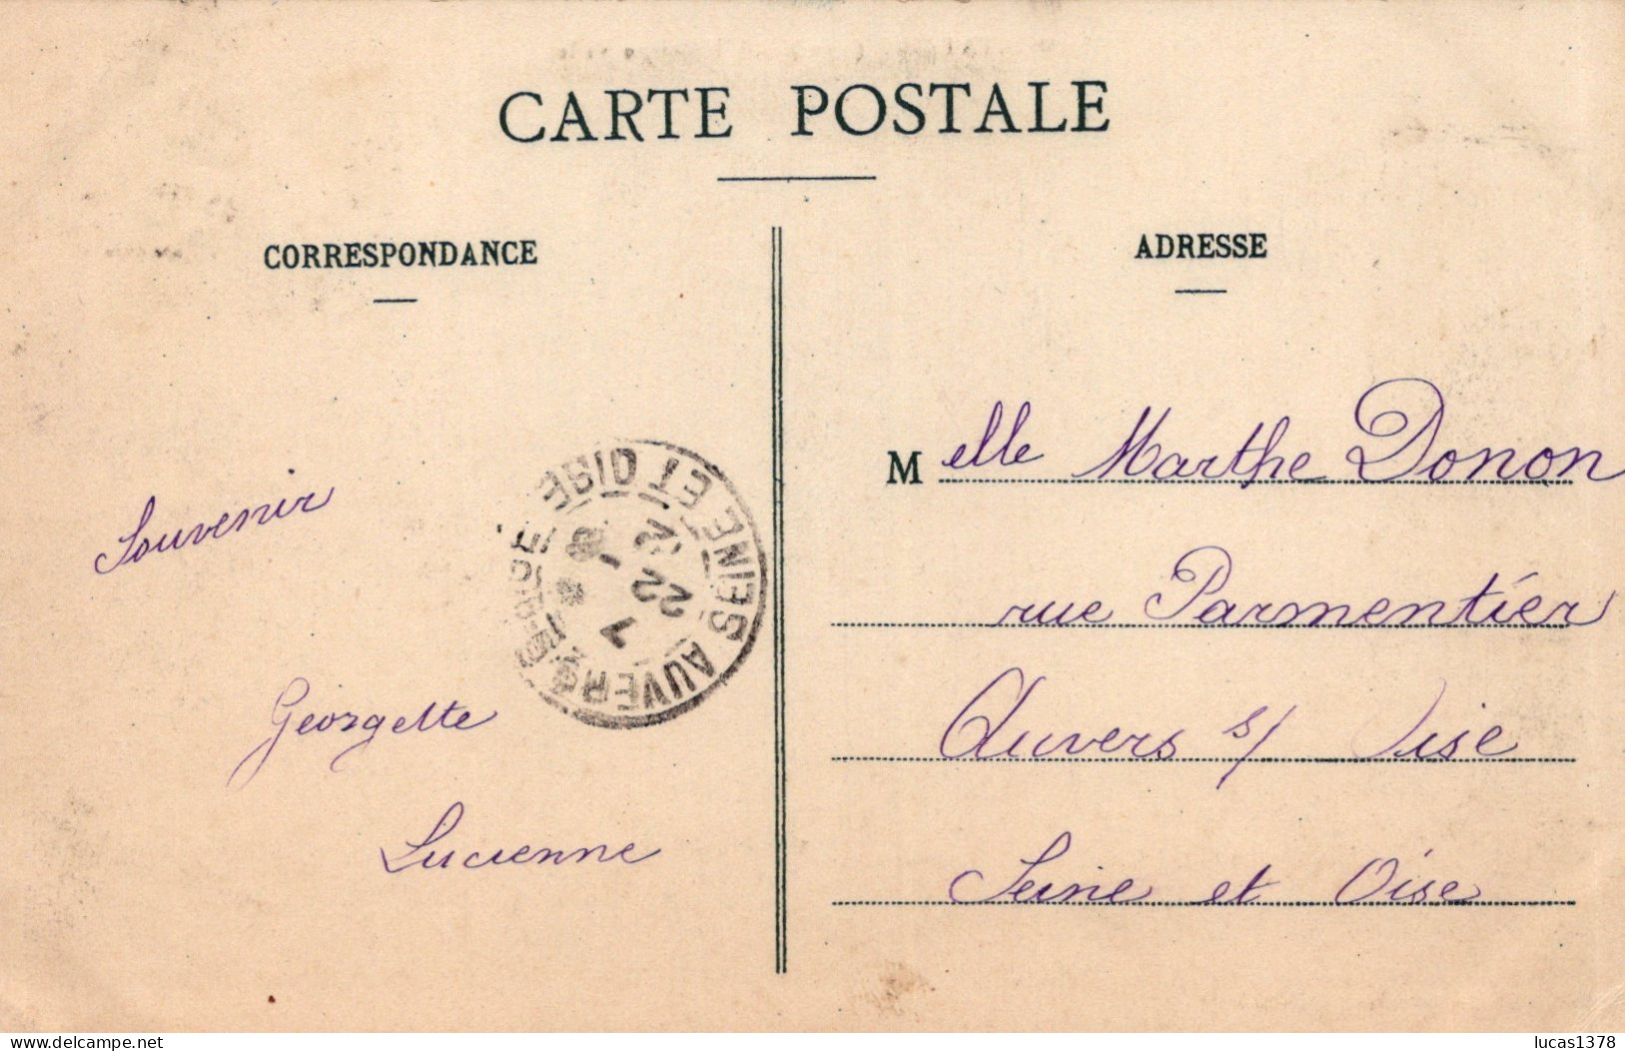 CARTE POSTALE
CORRESPONDANCE
ADRESSE
Souvenir
Georgette
Lucienne
Melle Marthe Donon
rue Parmentier
Auvers s/ Oise
Seine et Oise
AUVERS
SEINE ET OISE
7
22
delcampe.net
lucas1378